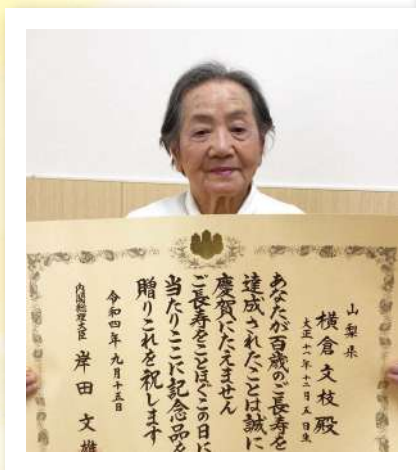 山梨県
横倉文枝殿
大正十一年十二月五日生
あなたが百歳のご長寿を
達成されたことは誠に
慶賀にたえません
ご長寿をことほぐこの日に
当たりここに記念品を
贈りこれを祝します
令和四年九月十五日
内閣総理大臣 岸田文雄